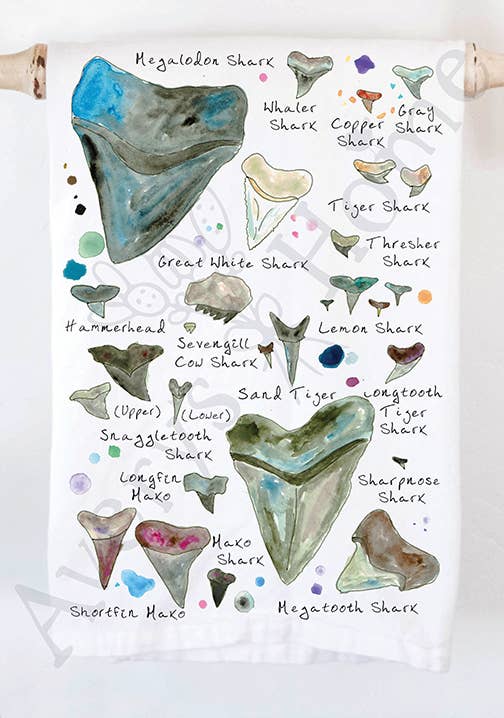 Megalodon Shark
Whaler
Shark
Copper
Shark
Gray
Shark
Tiger Shark
Great White Shark
Thresher
Shark
Hammerhead
Sevengill
Cow Shark
Lemon Shark
Sand Tiger
Longtooth
Tiger
Shark
(Upper)
(Lower)
Snaggletooth
Shark
Longfin
Mako
Sharpnose
Shark
Mako
Shark
Shortfin Mako
Megatooth Shark
Avery's
Home